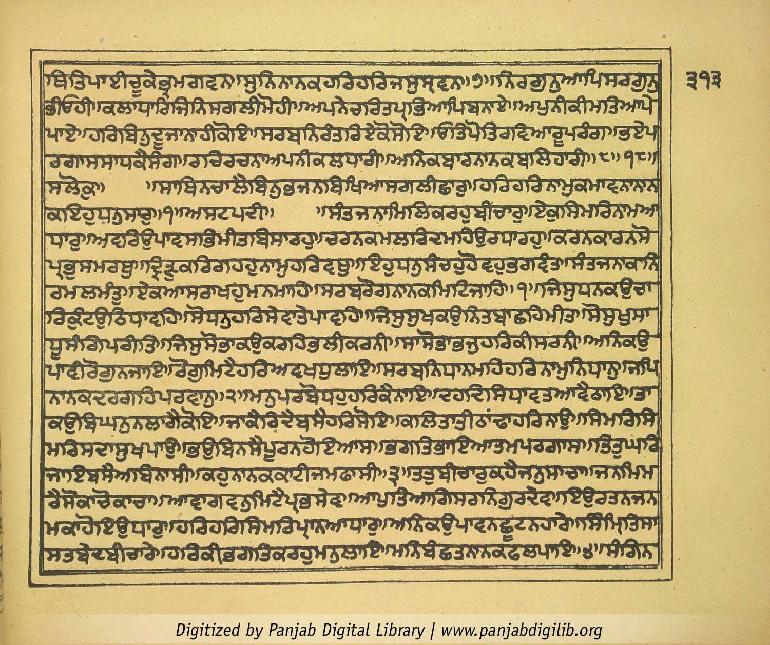 ਥਿਤਿਪਾਈਚੂਕੇਭ੍ਰਮਗਵਨ॥ਸੁਨਿਨਾਨਕਹਰਿਹਰਿਜਸੁਸ੍ਰਵਨ॥੭॥ਨਿਰਗੁਨੁਆਪਿਸਰਗੁਨੁ ੩੧੩
ਭੀਓਹੀ॥ਕਲਾਧਾਰਿਜਿਨਿਸਗਲੀਮੋਹੀ॥ਅਪਨੇਚਰਿਤਪ੍ਰਭਿਆਪਿਬਨਾਏ॥ਅਪੁਨੀਕੀਮਤਿਆਪੇ
ਪਾਏ॥ਹਰਿਬਿਨੁਦੂਜਾਨਾਹੀਕੋਇ॥ਸਰਬਨਿਰੰਤਰਿਏਕੋਸੋਇ॥ਓਤਿਪੋਤਿਰਵਿਆਰੂਪਰੰਗ॥ਭਏਪ
ਰਗਾਸਸਾਧਕੈਸੰਗ॥ਰਚਿਰਚਨਾਅਪਨੀਕਲਧਾਰੀ॥ਅਨਿਕਬਾਰਨਾਨਕਬਲਿਹਾਰੀ॥੮॥੧੮॥
ਸਲੋਕੁ॥ ਸਾਥਿਨਚਾਲੈਬਿਨੁਭਜਨਬਿਖਿਆਸਗਲੀਛਾਰੁ॥ਹਰਿਹਰਿਨਾਮੁਕਮਾਵਨਾਨਾਨ
ਕਇਹੁਧਨੁਸਾਰੁ॥੧॥ਅਸਟਪਦੀ॥ ਸੰਤਜਨਾਮਿਲਿਕਰਹੁਬੀਚਾਰੁ॥ਏਕੁਸਿਮਰਿਨਾਮਆ
ਧਾਰੁ॥ਅਵਰਿਉਪਾਵਸਭਿਮੀਤਬਿਸਾਰਹੁ॥ਚਰਨਕਮਲਰਿਦਮਹਿਉਰਧਾਰਹੁ॥ਕਰਨਕਾਰਨਸੋ
ਪ੍ਰਭੁਸਮਰਥੁ॥ਦ੍ਰਿੜੁਕਰਿਗਹਹੁਨਾਮੁਹਰਿਵਥੁ॥ਇਹੁਧਨੁਸੰਚਹੁਹੋਵਹੁਭਗਵੰਤ॥ਸੰਤਜਨਾਕਾਨਿ
ਰਮਲਮੰਤ॥ਏਕਆਸਰਾਖਹੁਮਨਮਾਹਿ॥ਸਰਬਰੋਗਨਾਨਕਮਿਟਿਜਾਹਿ॥੧॥ਜਿਸੁਧਨਕਉਚਾ
ਰਿਕੁੰਟਉਠਿਧਾਵਹਿ॥ਸੋਧਨੁਹਰਿਸੇਵਾਤੇਪਾਵਹਿ॥ਜਿਸੁਸੁਖਕਉਨਿਤਬਾਛਹਿਮੀਤ॥ਸੋਸੁਖੁਸਾ
ਧੂਸੰਗਿਪਰੀਤਿ॥ਜਿਸੁਸੋਭਾਕਉਕਰਹਿਭਲੀਕਰਨੀ॥ਸਾਸੋਭਾਭਜੁਹਰਿਕੀਸਰਨੀ॥ਅਨਿਕਉ
ਪਾਵੀਰੋਗੁਨਜਾਇ॥ਰੋਗੁਮਿਟੈਹਰਿਅਵਖਧੁਲਾਇ॥ਸਰਬਨਿਧਾਨਮਹਿਹਰਿਨਾਮੁਨਿਧਾਨੁ॥ਜਪਿ
ਨਾਨਕਦਰਗਹਿਪਰਵਾਨੁ॥੨॥ਮਨੁਪਰਬੋਧਹੁਹਰਿਕੈਨਾਇ॥ਦਹਦਿਸਿਧਾਵਤਆਵੈਠਾਇ॥ਤਾ
ਕਉਬਿਘਨੁਨਲਾਗੈਕੋਇ॥ਜਾਕੈਰਿਦੈਬਸੈਹਰਿਸੋਇ॥ਕਲਿਤਾਤੀਠਾਂਢਾਹਰਿਨਾਉ॥ਸਿਮਰਿਸਿ
ਮਰਿਸਦਾਸੁਖਪਾਉ॥ਭਉਬਿਨਸੈਪੂਰਨਹੋਇਆਸ॥ਭਗਤਿਭਾਇਆਤਮਪਰਗਾਸ॥ਤਿਤੁਘਰਿ
ਜਾਇਬਸੈਅਬਿਨਾਸੀ॥ਕਹੁਨਾਨਕਕਾਟੀਜਮਫਾਸੀ॥੩॥ਤਤੁਬੀਚਾਰੁਕਹੈਜਨੁਸਾਚਾ॥ਜਨਮਿਮ
ਰੈਸੋਕਾਚੋਕਾਚਾ॥ਆਵਾਗਵਨੁਮਿਟੈਪ੍ਰਭਸੇਵ॥ਆਪੁਤਿਆਗਿਸਰਨਿਗੁਰਦੇਵ॥ਇਉਰਤਨਜਨ
ਮਕਾਹੋਇਉਧਾਰੁ॥ਹਰਿਹਰਿਸਿਮਰਿਪ੍ਰਾਨਆਧਾਰੁ॥ਅਨਿਕਉਪਾਵਨਛੂਟਨਹਾਰੇ॥ਸਿੰਮ੍ਰਿਤਿਸਾ
ਸਤਬੇਦਬੀਚਾਰੇ॥ਹਰਿਕੀਭਗਤਿਕਰਹੁਮਨੁਲਾਇ॥ਮਨਿਬੰਛਤਨਾਨਕਫਲਪਾਇ॥੪॥ਸੰਗਿਨ
Digitized by Panjab Digital Library | www.panjabdigilib.org